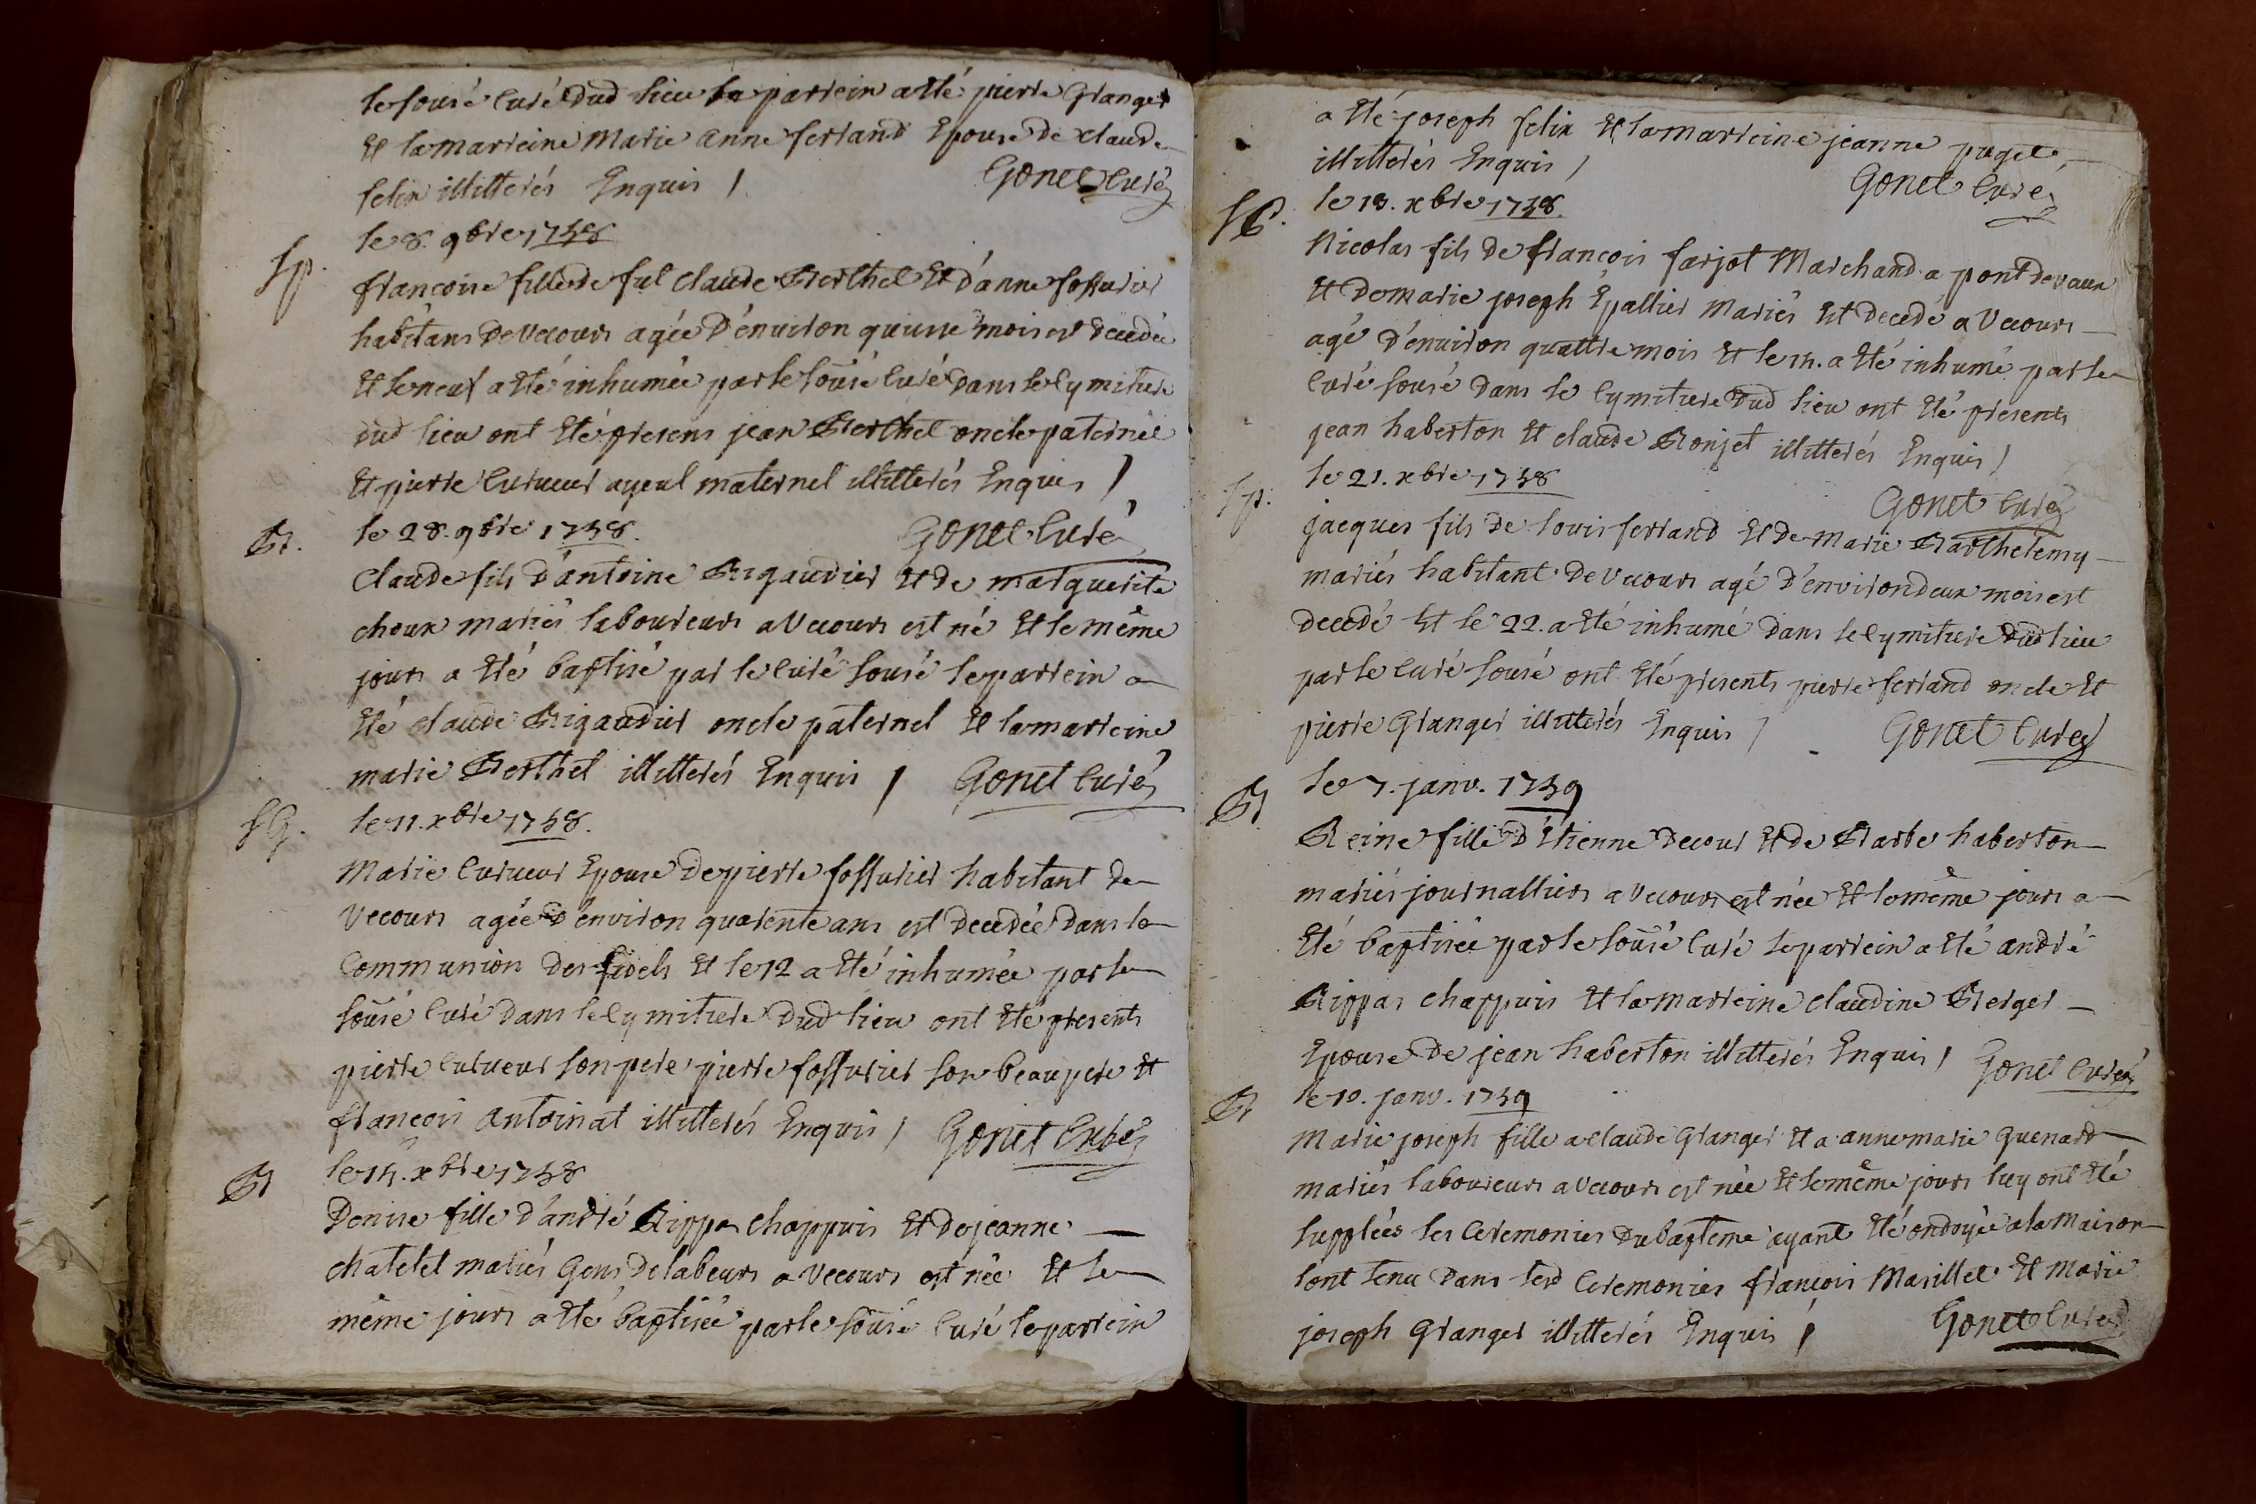 le sousé curé dud lieu le parrein a eté pierre Granger
et la marreine Marie Anne ferrand Epouse de claude
felix illitterés Enquis /
Gonet Curé
le 8. 9bre 1738
Sp.
françoise fille de fut claude Berthet Et d'anne fossurier
habitans de Vecours agée d'environ quinse mois est decedée
Et le neuf a eté inhumée par le sousé curé dans le Cymitiere
dud lieu ont eté presens jean Berthet oncle paternel
Et pierre Curveur ayeul maternel illitterés Enquis /
Gonet Curé
Bt.
le 28. 9bre 1738.
Claude fils d'antoine Brigaudier Et de marguerite
cheux mariés laboureurs a Vecours est né Et le même
jours a eté baptisé par le curé sousé le parrein a
eté claude Brigaudier oncle paternel Et la marreine
marie Berthet illitterés Enquis / Gonet Curé
SG.
le 11. xbre 1738.
Marie Curveur Epouse de pierre fossurier habitant de
Vecours agée d'environ quarente ans est decedée dans la
Communion des fidels Et le 12 a eté inhumée par le
sousé curé dans le Cymitiere dud lieu ont eté presents
pierre Curveur son pere pierre fossurier son beaupere Et
françois Antoinat illitterés Enquis / Gonet Curé
Bt
le 14. xbre 1738
Denise fille d'andré Rippas Chappuis Et de jeanne
chatelet mariés Gens de labeurs a Vecours est née Et le
même jours a eté baptisée par le sousé curé le parrein
a eté joseph felix Et la marreine jeanne puget
illitterés Enquis /
Gonet Curé
Sp.
le 13. xbre 1738.
Nicolas fils de françois farjot Marchand a pontdevaux
Et de marie joseph Epallier Mariés Est decedé a Vecours
agé d'environ quattre mois Et le 14. a eté inhumé par le
Curé sousé dans le Cymitiere dud lieu ont eté presents
jean haberton Et claude Bonjet illitterés Enquis /
Gonet Curé
Sp.
le 21. xbre 1738
jacques fils de Louis ferrand Et de Marie Barthelemy
mariés habitant de Vecours agé d'environ deux mois est
decedé Et le 22. a eté inhumé dans le Cymitiere dud lieu
par le curé sousé ont eté presents pierre ferrand oncle Et
pierre Granger illitterés Enquis / Gonet Curé
Bt
le 7. janv. 1739
Reine fille d'Etienne Decour Et de Barbe haberton
mariés journalliers a Vecours est née Et le même jours a
eté baptisée par le sousé curé le parrein a eté andré
Rippas Chappuis Et la marreine claudine Berger
Epouse de jean haberton illitterés Enquis / Gonet Curé
Bt
le 10. janv. 1739
Marie joseph fille a claude Granger Et a anne marie Guenard
mariés laboureurs a Vecours est née Et le même jours luy ont eté
supplées les Ceremonies du bapteme ayant eté ondoyée a la Maison
l'ont tenu dans lesd Ceremonies françois Marillet Et Marie
joseph Granger illitterés Enquis / Gonet Curé